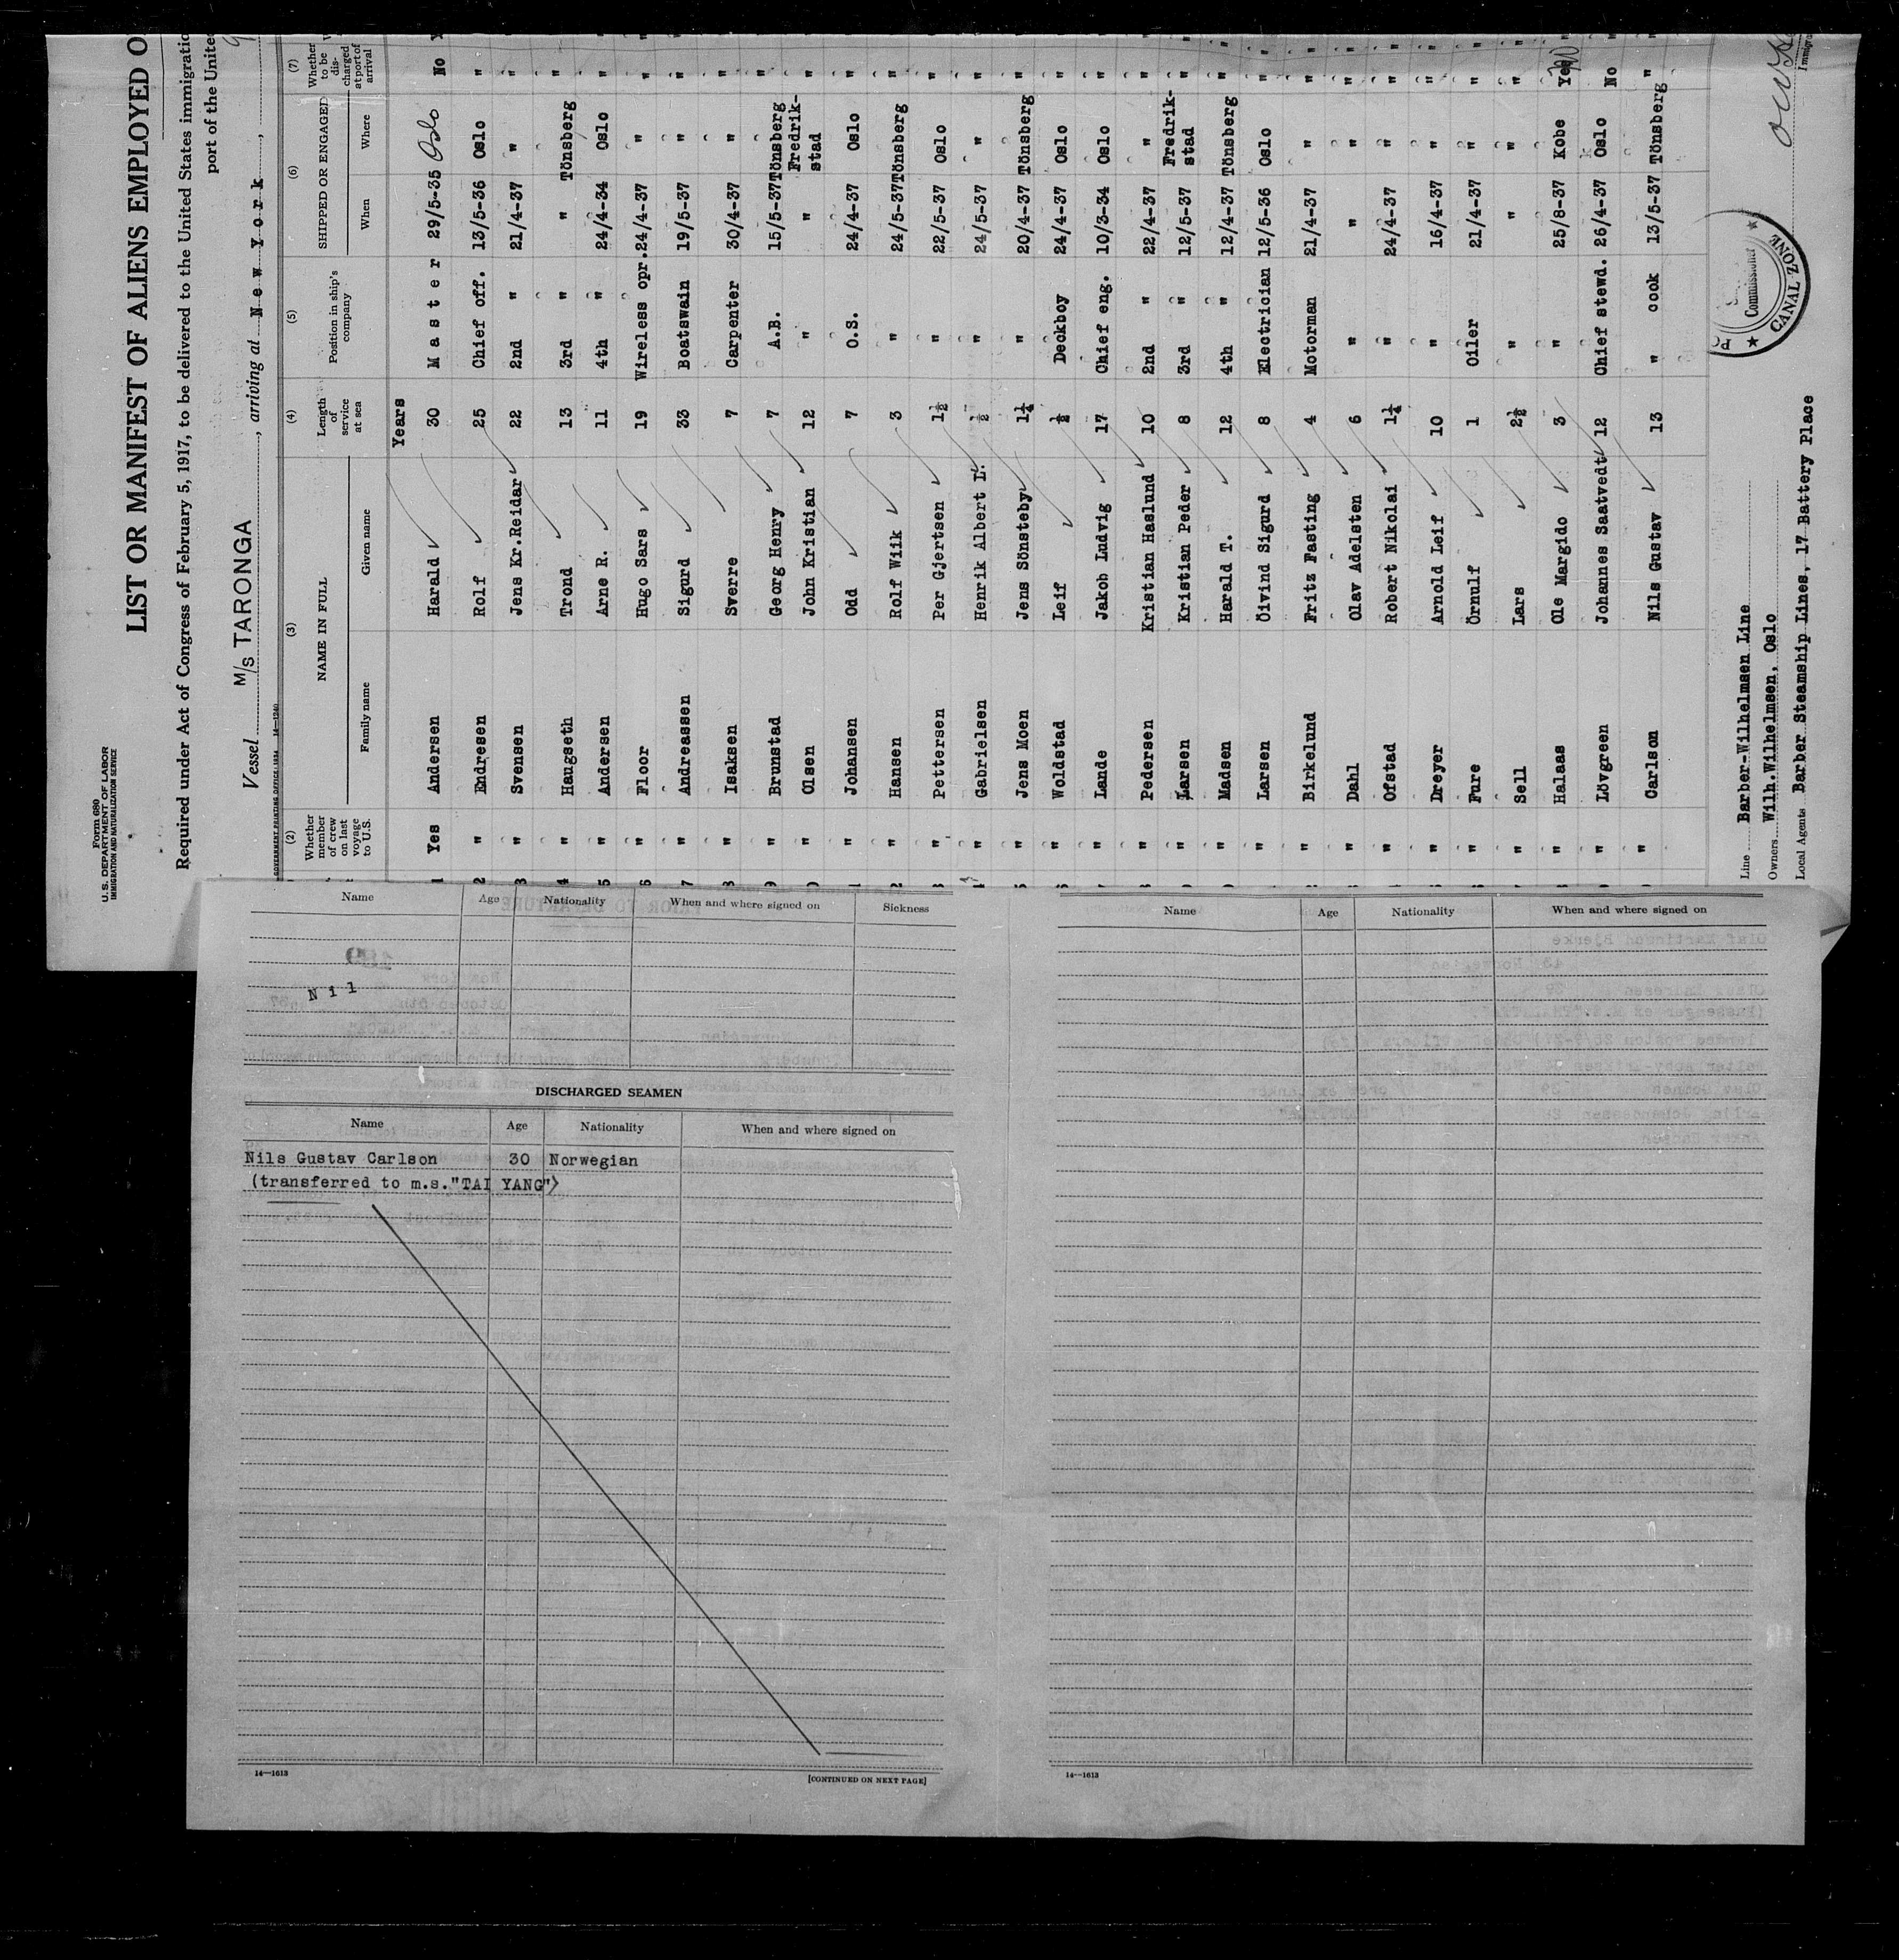 Form 680
U. S. DEPARTMENT OF LABOR
IMMIGRATION AND NATURALIZATION SERVICE
LIST OR MANIFEST OF ALIENS EMPLOYED O
Required under Act of Congress of February 5, 1917, to be delivered to the United States immigratio
port of the Unite
Vessel M/S TARONGA, arriving at New York,
GOVERNMENT PRINTING OFFICE: 1934 14—1240
(2) (3) (4) (5) (6) (7)
Whether member of crew on last voyage to U.S. NAME IN FULL Length of service at sea Position in ship's company SHIPPED OR ENGAGED Whether to be discharged at port of arrival
Family name Given name When Where
Years
1 Yes Andersen Harald 30 Master 29/5-35 Oslo No
2 " Endresen Rolf 25 Chief off. 13/5-36 Oslo "
3 " Svensen Jens Kr.Reidar 22 2nd " 21/4-37 " "
4 " Haugseth Trond 13 3rd " " Tönsberg "
5 " Andersen Arne R. 11 4th " 24/4-34 Oslo "
6 " Floor Hugo Sars 19 Wireless opr. 24/4-37 " "
7 " Andreassen Sigurd 33 Boatswain 19/5-37 " "
8 " Isaksen Sverre 7 Carpenter 30/4-37 " "
9 " Brunstad Georg Henry 7 A.B. 15/5-37 Tönsberg "
0 " Olsen John Kristian 12 " " Fredrik-stad "
1 " Johansen Odd 7 O.S. 24/4-37 Oslo "
2 " Hansen Rolf Wiik 3 " 24/5-37 Tönsberg "
3 " Pettersen Per Gjertsen 1½ " 22/5-37 Oslo "
4 " Gabrielsen Henrik Albert L. ½ " 24/5-37 " "
5 " Jens Moen Jens Sönsteby 1¼ " 20/4-37 Tönsberg "
6 " Woldstad Leif ½ Deckboy 24/4-37 Oslo "
7 " Lande Jakob Ludvig 17 Chief eng. 10/3-34 Oslo "
8 " Pedersen Kristian Haslund 10 2nd " 22/4-37 " "
9 " Larsen Kristian Peder 8 3rd " 12/5-37 Fredrik-stad "
0 " Madsen Harald T. 12 4th " 12/4-37 Tönsberg "
" Larsen Öivind Sigurd 8 Electrician 12/5-36 Oslo "
" Birkelund Fritz Fasting 4 Motorman 21/4-37 " "
" Dahl Olav Adelsten 6 " " " "
" Ofstad Robert Nikolai 1¼ " 24/4-37 " "
" Dreyer Arnold Leif 10 " 16/4-37 " "
" Fure Örnulf 1 Oiler 21/4-37 " "
" Sell Lars 2½ " " " "
" Halaas Ole Margido 3 " 25/8-37 Kobe Yes
" Lövgreen Johannes Saatvedt 12 Chief stewd. 26/4-37 Oslo No
" Carlson Nils Gustav 13 " cook 13/5-37 Tönsberg "
Line Barber-Wilhelmsen Line
Owners Wilh.Wilhelmsen, Oslo
Local Agents Barber Steamship Lines, 17 Battery Place
Commissioner
CANAL ZONE
Name Age Nationality When and where signed on Sickness
Nil
DISCHARGED SEAMEN
Name Age Nationality When and where signed on
Nils Gustav Carlson 30 Norwegian
(transferred to m.s."TAI YANG")
14—1613 [CONTINUED ON NEXT PAGE]
Name Age Nationality When and where signed on
14—1613